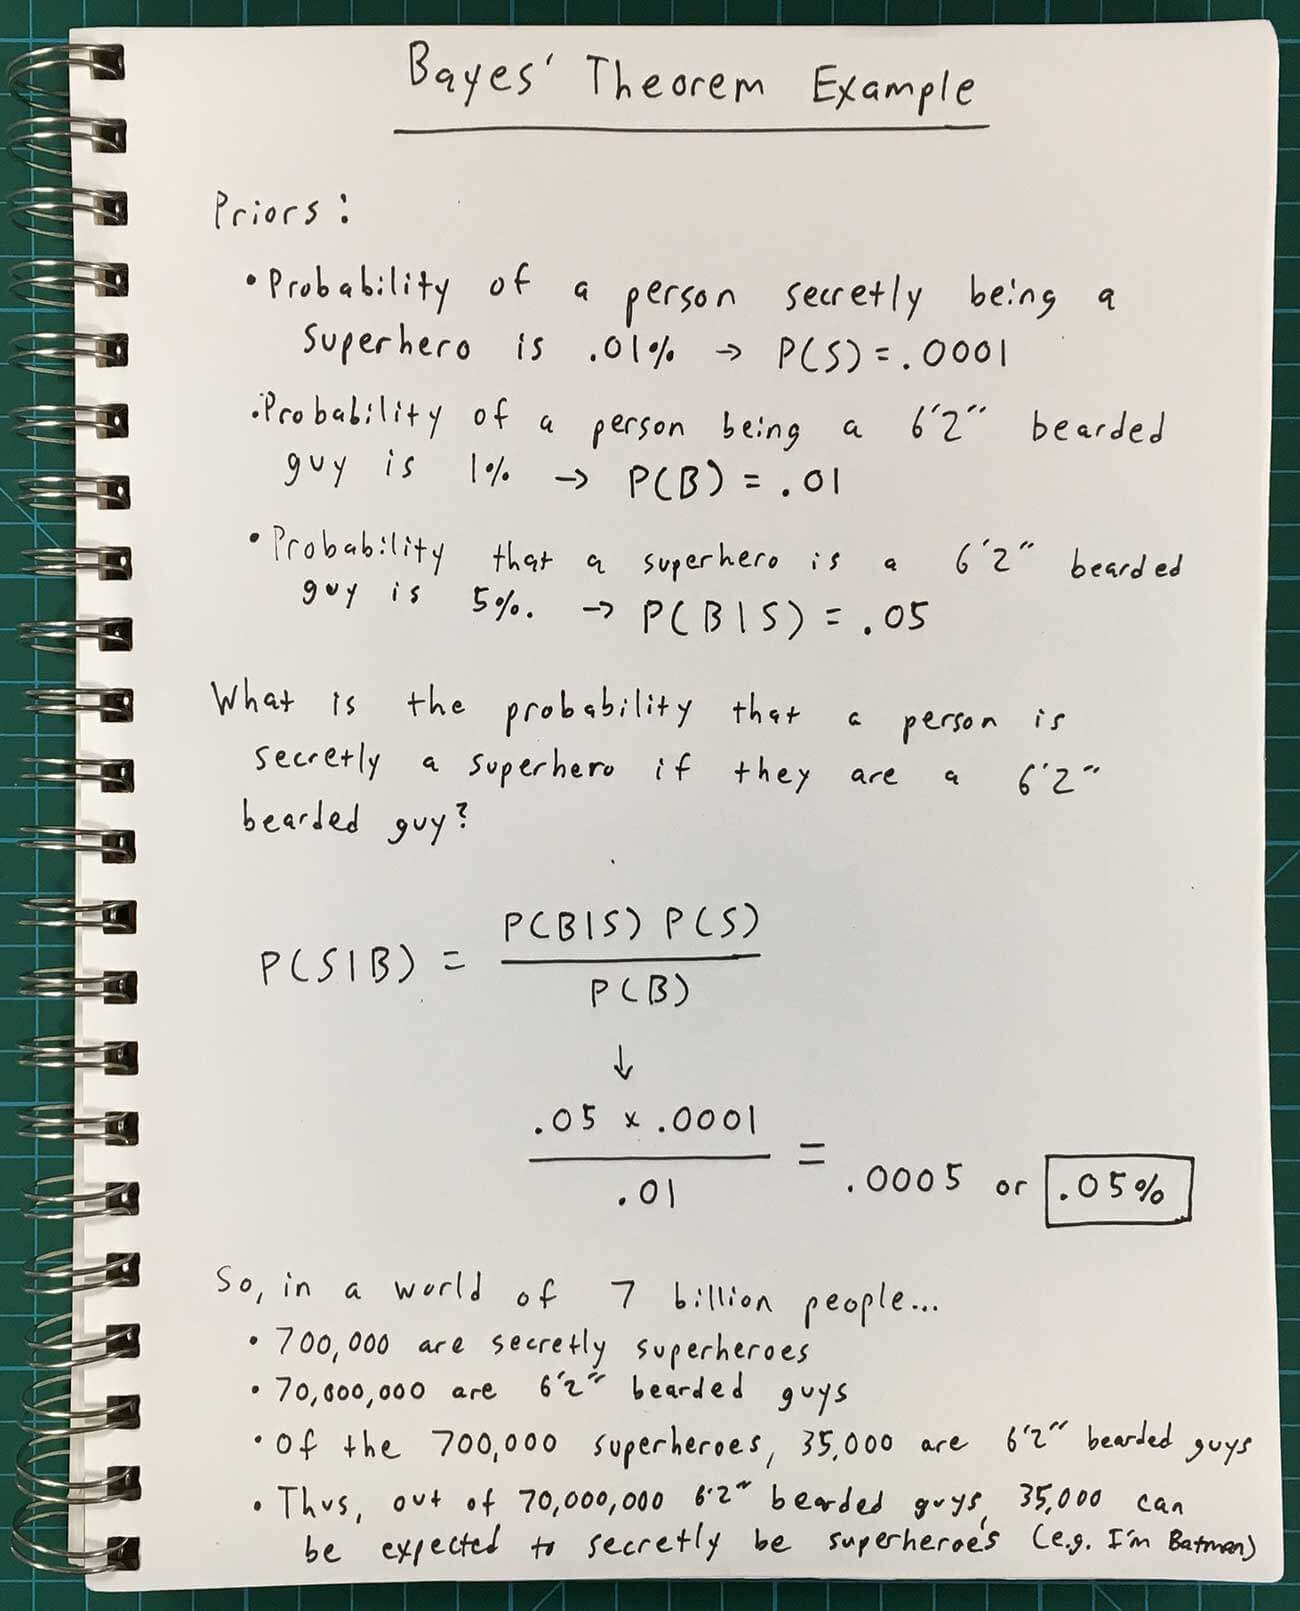 Bayes' Theorem Example
Priors:
• Probability of a person secretly being a
superhero is .01% → P(S) = .0001
• Probability of a person being a 6'2" bearded
guy is 1% → P(B) = .01
• Probability that a superhero is a 6'2" bearded
guy is 5%. → P(B|S) = .05
What is the probability that a person is
secretly a superhero if they are a 6'2"
bearded guy?
P(S|B) = P(B|S) P(S)
P(B)
↓
.05 x .0001
.01
= .0005 or .05%
So, in a world of 7 billion people...
• 700,000 are secretly superheroes
• 70,000,000 are 6'2" bearded guys
• Of the 700,000 superheroes, 35,000 are 6'2" bearded guys
• Thus, out of 70,000,000 6'2" bearded guys, 35,000 can
be expected to secretly be superheroe's (e.g. I'm Batman)